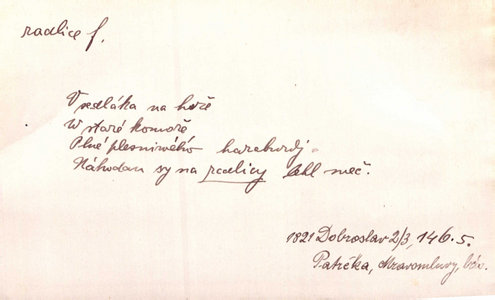 radlice f.
V sedláka na hoře
W staré komoře
Plné plesniwého haraburdj
Náhodau sy na radlicy lehl meč.
1821 Dobroslav 2/3, 146.5.
Patrčka,